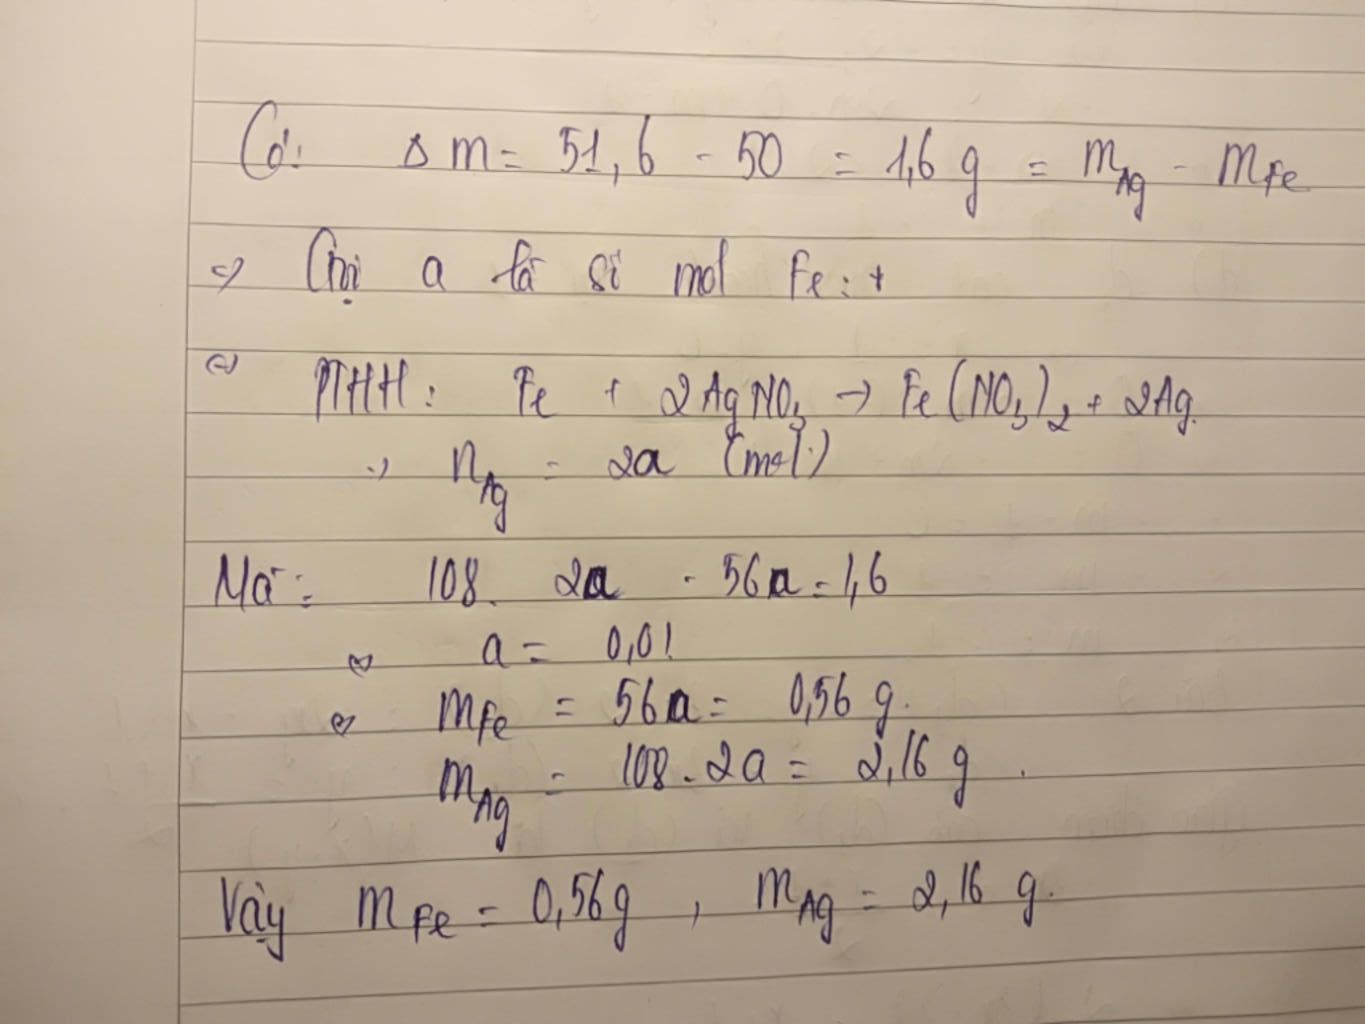 Có: Δm = 51,6 - 50 = 1,6 g = mAg - mFe
=> Gọi a là số mol Fe: +
=> PTHH: Fe + 2AgNO3 -> Fe(NO3)2 + 2Ag.
=> nAg = 2a (mol)
Mà: 108. 2a - 56a = 1,6
<=> a = 0,01
=> mFe = 56a = 0,56 g.
mAg = 108.2a = 2,16 g.
Vậy mFe = 0,56g, mAg = 2,16 g.